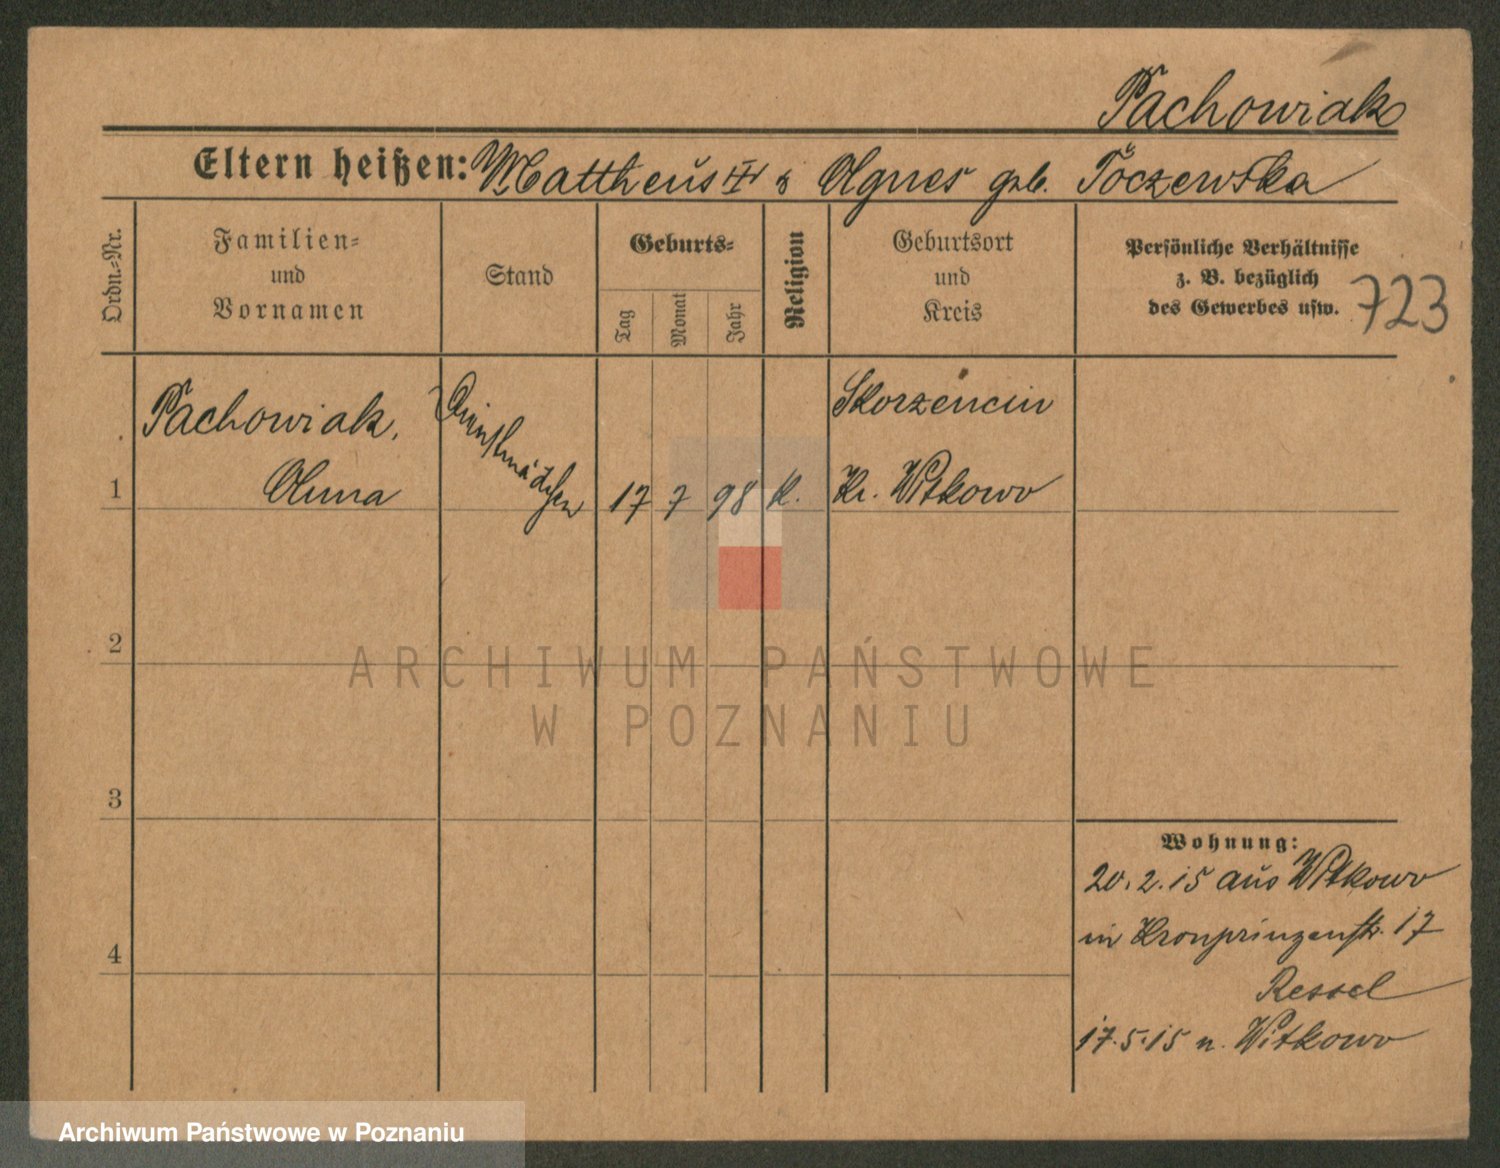 Pachowiak
Eltern heißen: Mattheus & Agnes geb. Toczewska
Ordn.-Nr.
Familien-
und
Vornamen
Stand
Geburts-
Tag
Monat
Jahr
Religion
Geburtsort
und
Kreis
Persönliche Verhältnisse
z. B. bezüglich
des Gewerbes usw.
723
Pachowiak,
Anna
Dienstmädchen
1
17 7 98 k.
Skorzencin
Kr. Witkowo
2
3
4
ARCHIWUM PAŃSTWOWE
W POZNANIU
Wohnung:
20.2.15 aus Witkowo
in Kronprinzenstr. 17
Ressel
17.5.15 n. Witkowo
Archiwum Państwowe w Poznaniu